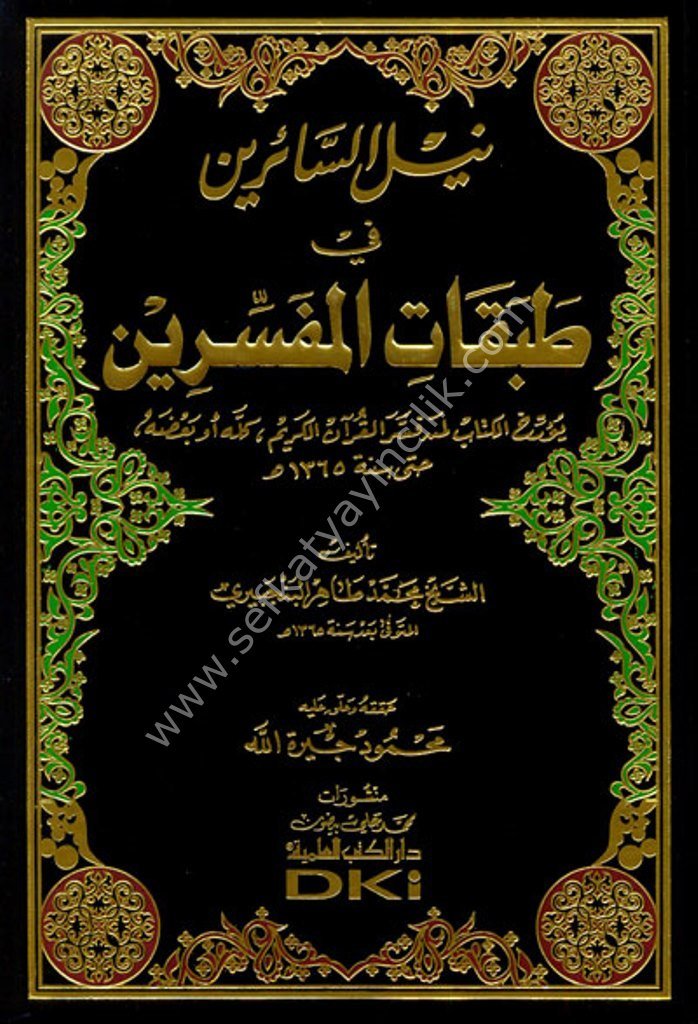 نيل السائرين
في
طَبَقَاتِ المُفَسِّرِيْن
يؤرخ الكتاب لمن فسر القرآن الكريم، كله أو بعضه،
حتى سنة ١٣٦٥ هـ
تأليف
الشيخ محمد طاهر
المتوفى بعد سنة ١٣٦٥هـ
حققه وعلق عليه
محمود جيرة الله
منشورات
محمد علي بيضون
دار الكتب العلمية
DKi
www.serhatyayincilik.com